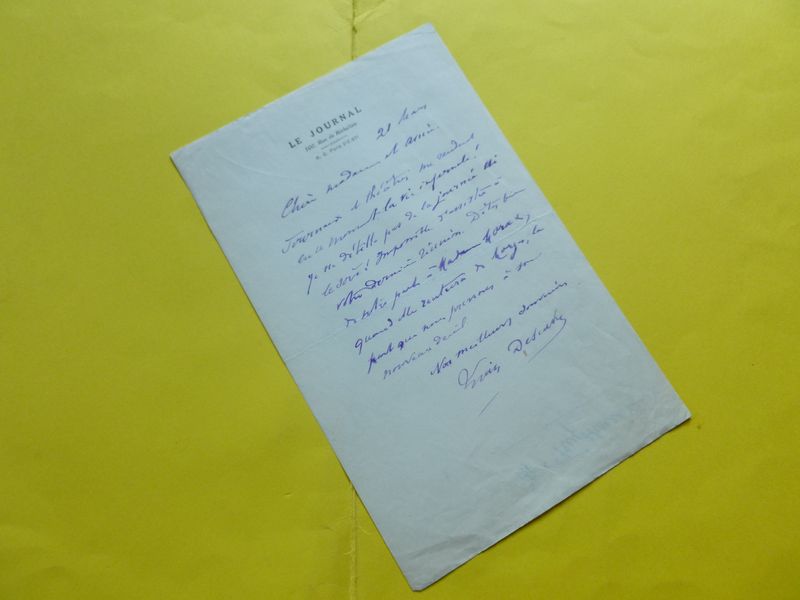 LE JOURNAL
100, Rue de Richelieu
21 Mars
Chère madame et amie,
Journaux et théâtres me rendent
en ce moment la vie infernale!
Je ne dételle pas de la journée ni
la soirée! Impossible d'assister à
votre dernière réunion. Dites bien
de notre part à Madame
quand elle rentrera de la
part que nous prenons à son
nouveau deuil
Nos meilleurs souvenirs
Lucien Descaves